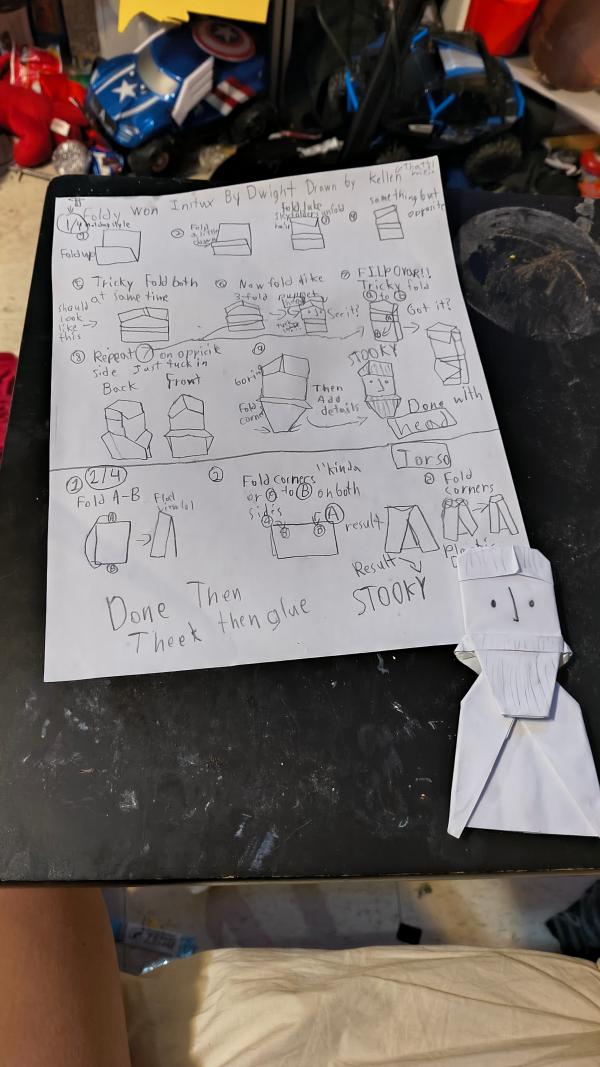 Foldy won Initux By Dwight Drawn by Kellen "That's me!"
1/4
Fold up
② Fold a little down
fold like skyfolder unfold
④ same thing but opposite
⑤ Tricky Fold both at same time
should look like this →
⑥ Now fold like
3-fold puppet
See it?
⑦ FLIP OVAR!!
Tricky fold
Ⓐ to Ⓑ
Got it?
⑧ Repeat ⑦ on
side Just tuck in
Back Front
⑨
Fold corner
Then Add details
STOOKY
Done with head
Torso
① 2/4
Fold A-B
A
B
Flat
② Fold corners "kinda
or Ⓐ to Ⓑ on both
sides
A
B
B
A
result
③ Fold corners
Result
STOOKY
Done Then
Theek then glue